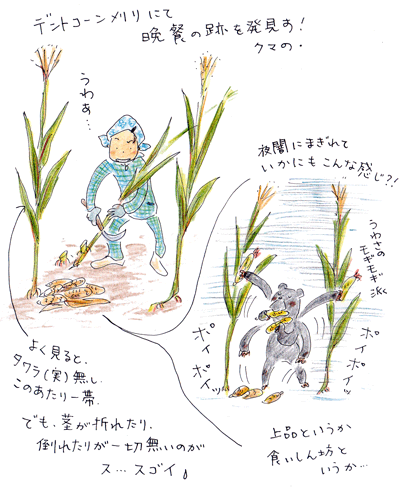 デントコーンメリリにて
晩餐の跡を発見す!
クマの・
うわぁ…
夜闇にまぎれて
いかにもこんな感じ?!
うわさの
モギモギ
ポイ
ポイッ
ポイ
ポイッ
よく見ると、
タワラ(実)無し
このあたり一帯.
でも、茎が折れたり、
倒れたりが一切無いのが
ス…スゴイ
上品というか
食いしん坊と
いうか…